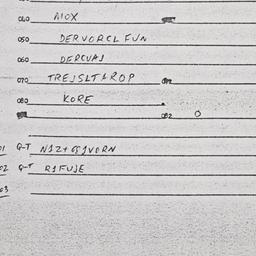 040 MOX
050 DERVORCL FUN
060 DERCUAJ
070 TREJSLTAROP
080 KORE
082 O
01 G-T N1Z+G1VORN
02 G-T R1FUJE
03